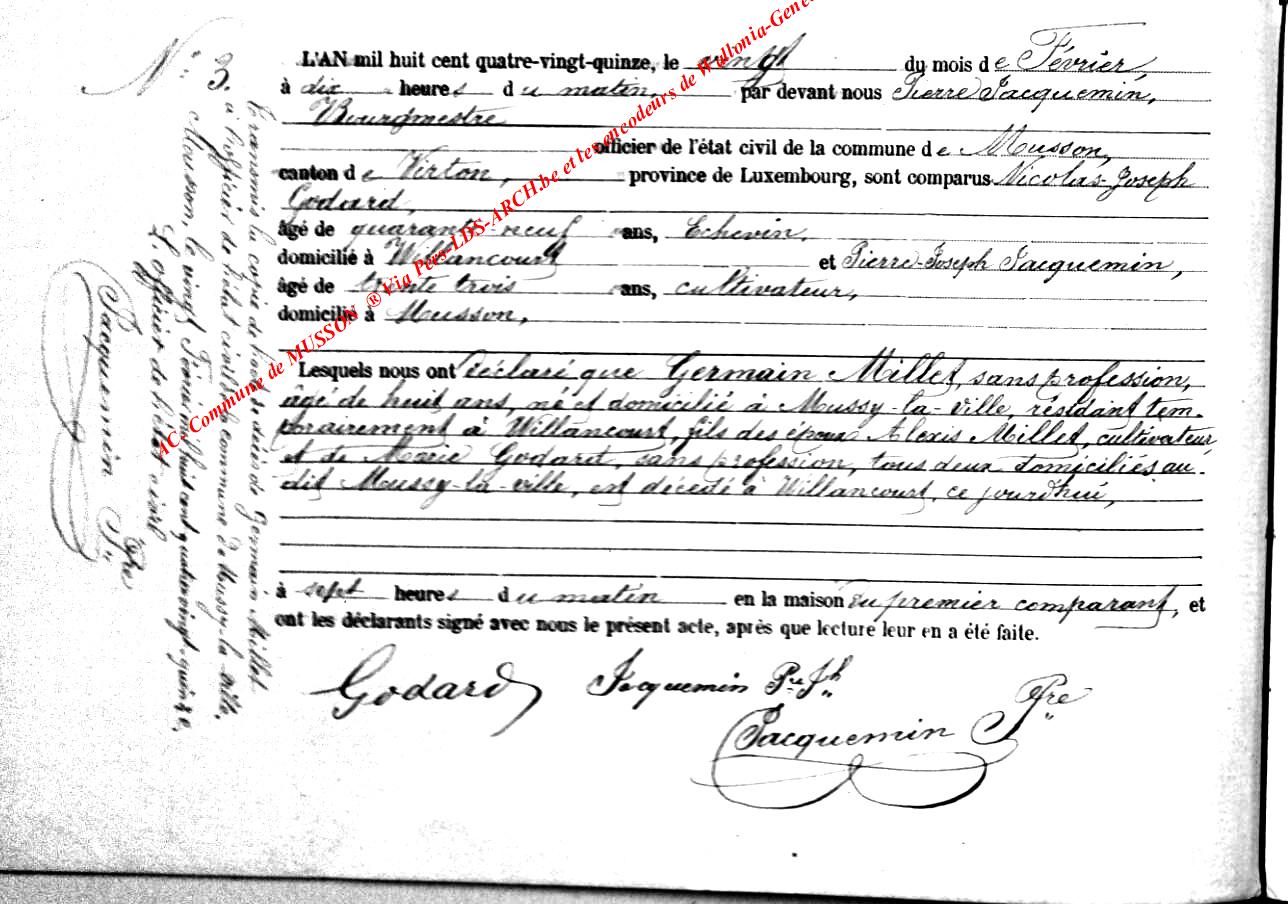 N° 3.
L'AN mil huit cent quatre-vingt-quinze, le vingt du mois de Février,
à dix heures du matin, par devant nous Pierre Jacquemin,
Bourgmestre
officier de l'état civil de la commune de Musson,
canton de Virton, province de Luxembourg, sont comparus Nicolas-Joseph
Godard,
âgé de quarante-neuf ans, Echevin,
domicilié à Willancourt et Pierre-Joseph Jacquemin,
âgé de trente trois ans, cultivateur,
domicilié à Musson,
Lesquels nous ont déclaré que Germain Millet, sans profession,
âgé de huit ans, né et domicilié à Mussy-la-ville, résidant tem-
porairement à Willancourt, fils des époux Alexis Millet, cultivateur,
et de Marie Godard, sans profession, tous deux domiciliés au-
dit Mussy-la-ville, est décédé à Willancourt, ce jourd'hui,
à sept heures du matin en la maison du premier comparant, et
ont les déclarants signé avec nous le présent acte, après que lecture leur en a été faite.
Godard Jacquemin Pre Jh
Jacquemin Pre
Transmis la copie de l'acte de décès de Germain Millet
à l'officier de l'état civil de la commune de Mussy-la-ville.
Musson, le vingt Février mil huit cent quatre-vingt-quinze,
L'officier de l'état civil
Jacquemin Pre
AC. Commune de MUSSON ® Via Pees-LDS-ARCH.be et les encodeurs de Wallonia-Gene